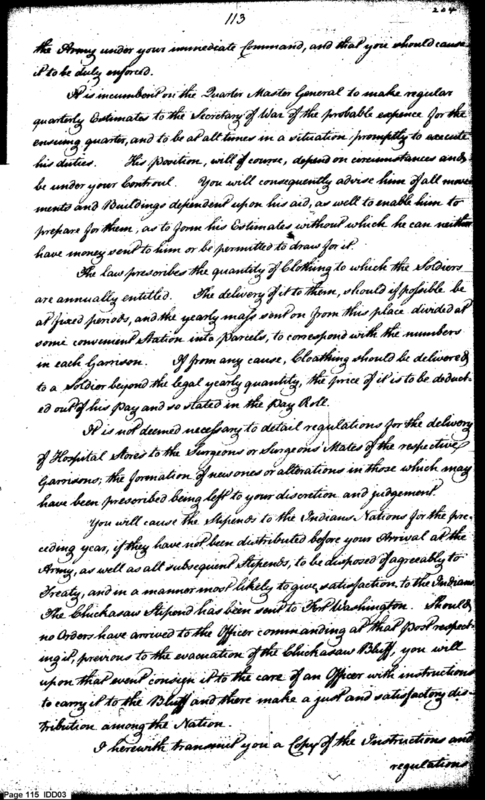 113
204
the Army under your immediate Command, and that you should cause
it to be duly enforced.
It is incumbent on the Quarter Master General to make regular
quarterly Estimates to the Secretary of War of the probable expence for the
ensuing quarter, and to be at all times in a situation promptly to execute
his duties. His position, will of course, depend on circumstances and
be under your Controul. You will consequently advise him of all move
ments and Buildings dependent upon his aid, as well to enable him to
prepare for them, as to form his Estimates without which he can neither
have money sent to him or be permitted to draw for it.
The law prescribes the quantity of Clothing to which the Soldiers
are annually entitled. The delivery of it to them, should if possible be
at fixed periods, and the yearly mass sent on from this place divided at
some convenient Station into Parcels, to correspond with the numbers
in each Garrison. If from any cause, Cloathing should be delivered
to a Soldier beyond the legal yearly quantity, the price of it is to be deduct-
ed out of his Pay and so stated in the Pay Roll.
It is not deemed necessary to detail regulations for the delivery
of Hospital Stores to the Surgeons or Surgeons Mates of the respective
Garrisons, the formation of new ones or alterations in those which may
have been prescribed being left to your discretion and judgement.
You will cause the Stipends to the Indians Nations for the pre-
ceding year, if they have not been distributed before your Arrival at the
Army, as well as all subsequent Stipends, to be disposed of agreeably to
Treaty, and in a manner most likely to give satisfaction to the Indians
The Chickasaw Stipend has been sent to Fort Washington. Should
no Orders have arrived to the Officer commanding at that Post respect-
ing it, previous to the evacuation of the Chickasaw Bluff, you will
upon that event consign it to the care of an Officer with instructions
to carry it to the Bluff and there make a just and satisfactory dis-
tribution among the Nation.
I herewith transmit you a Copy of the Instructions and
regulations
Page 115 IDD03